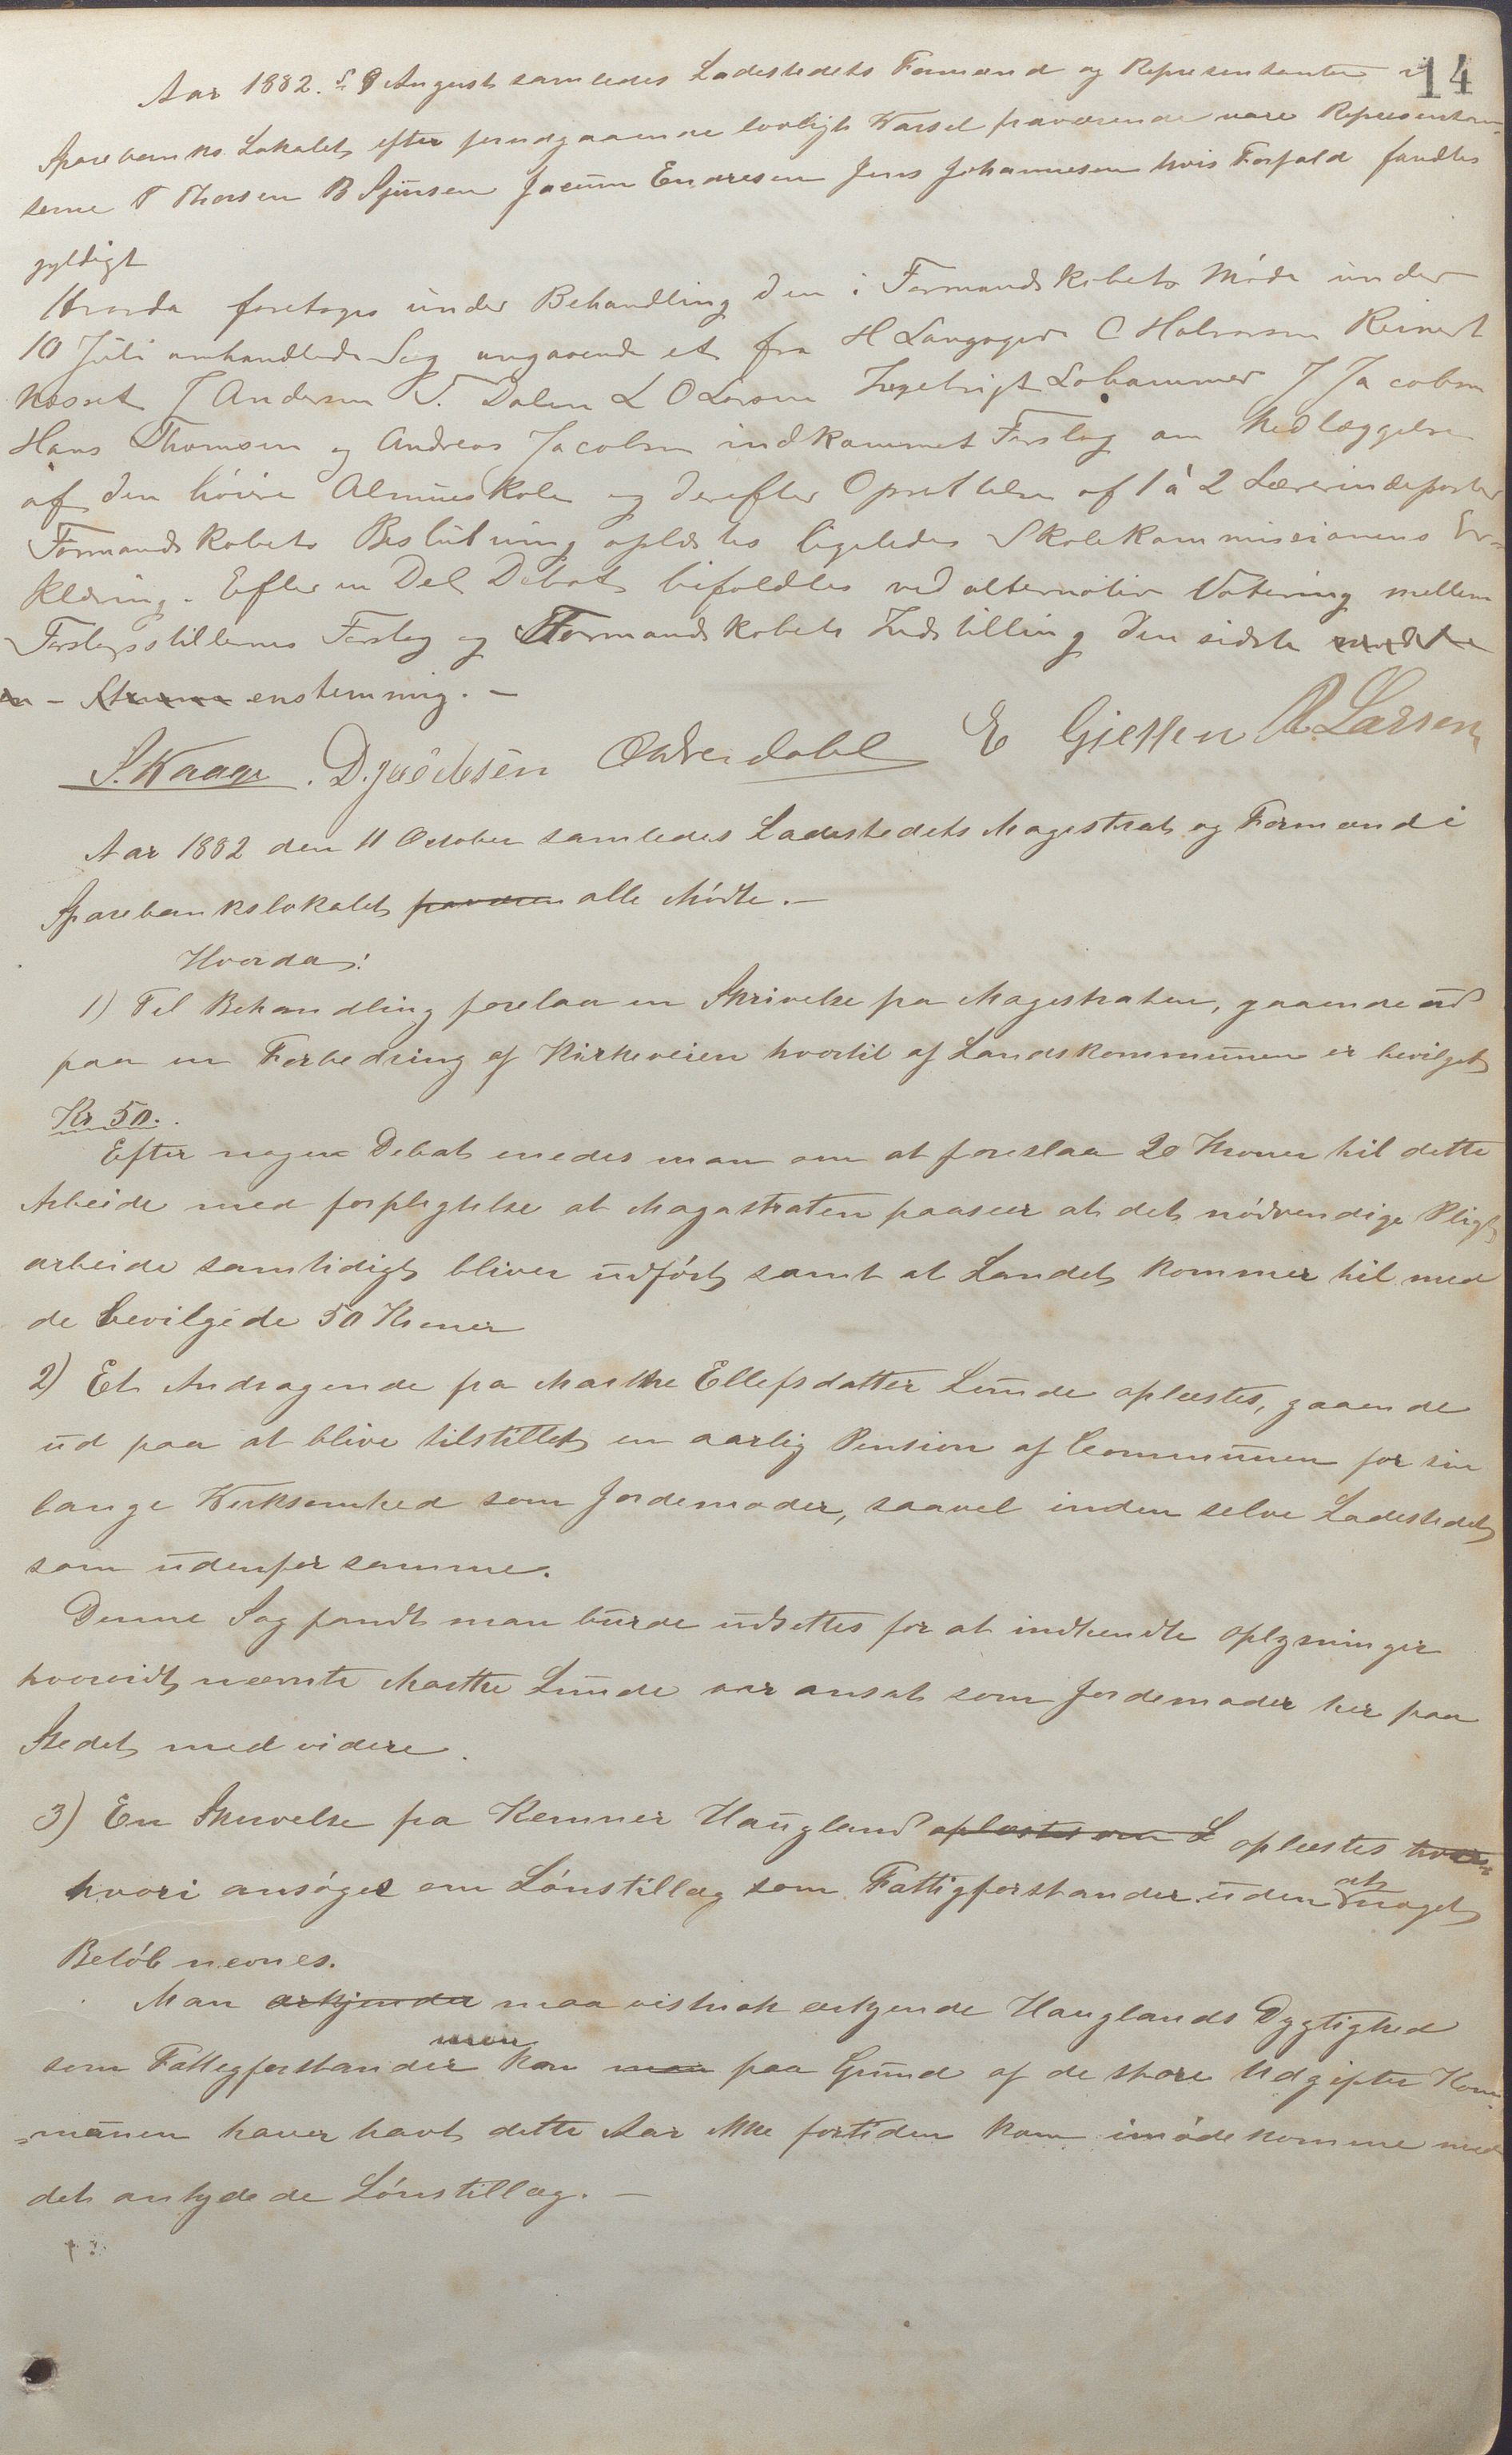 14
Aar 1882. d 9 August samledes Ladestedets Formænd og Repræsentanter i
Sparebanks Lokalet efter forudgaaende lovligt Varsel fraværende vare Repræsentan-
terne T Thorsen B Sjursen Jacum Endresen Jens Johannesen hvis Forfald fandtes
gyldigt
Hvorda foretoges under Behandling den i Formandskabets Møde under
10 Juli omhandlede Sag angaaende et fra H Langager C Halvorsen Reinert
Næsset J Andersen T. Dalen L O Larsen Ingebrigt Lohammer J Jacobsen
Hans Thomsen og Andreas Jacobsen indkommet Forslag om Nedlæggelse
af den høiere Almueskole og derefter Oprettelse af 1 à 2 Lærerindeposter
Formandskabets Beslutning oplæstes ligeledes Skolekommissionens Er-
klæring. Efter en Del Debat bifaldtes ved alternativ Votering mellem
Forslagsstillernes Forslag og Formandskabets Indstilling den sidste
- enstemmig. -
S. Waage. D. Jacobsen Østerdahl E Gjessen R Larsen
Aar 1882 den 11 October samledes Ladestedets Magistrat og Formænd i
Sparebankslokalet alle Mødte. -
Hvorda:
1) Til Behandling forelaa en Skrivelse fra Magistraten, gaaende ud
paa en Forbedring af Kirkeveien hvortil af Landskommunen er bevilget
Kr 50.
Efter nogen Debat enedes man om at foreslaa 20 Kroner til dette
Arbeide med forpligtelse at Magastraten paaseer at det nødvendige Pligt
arbeide samtidigt bliver udført samt at Landet kommer til med
de bevilgede 50 Kroner
2) Et Andragende fra Marthe Ellefsdatter Lunde oplæstes, gaaende
ud paa at blive tilstillet en aarlig Pension af Communen for sin
lange Virksomhed som Jordemoder, saavel inden selve Ladestedet
som udenfor samme.
Denne Sag fandt man burde udsettes for at indhendte oplysninger
hvorvidt nævnte Marthe Lunde var ansat som Jordemoder her paa
Stedet med videre.
3) En Skrivelse fra Kemner Haugland oplæstes om L oplæstes hvor-
hvori ansøges om Lønstillæg som Fattigforstander uden at noget
Beløb nevnes.
Man erkjender maa vistnok erkjende Hauglands Dygtighed
som Fattigforstander men kan man paa Grund af de store Udgifter Kom-
munen haver havt dette Aar ikke fortiden kan imødekomme med
det antydede Lønstillæg. -